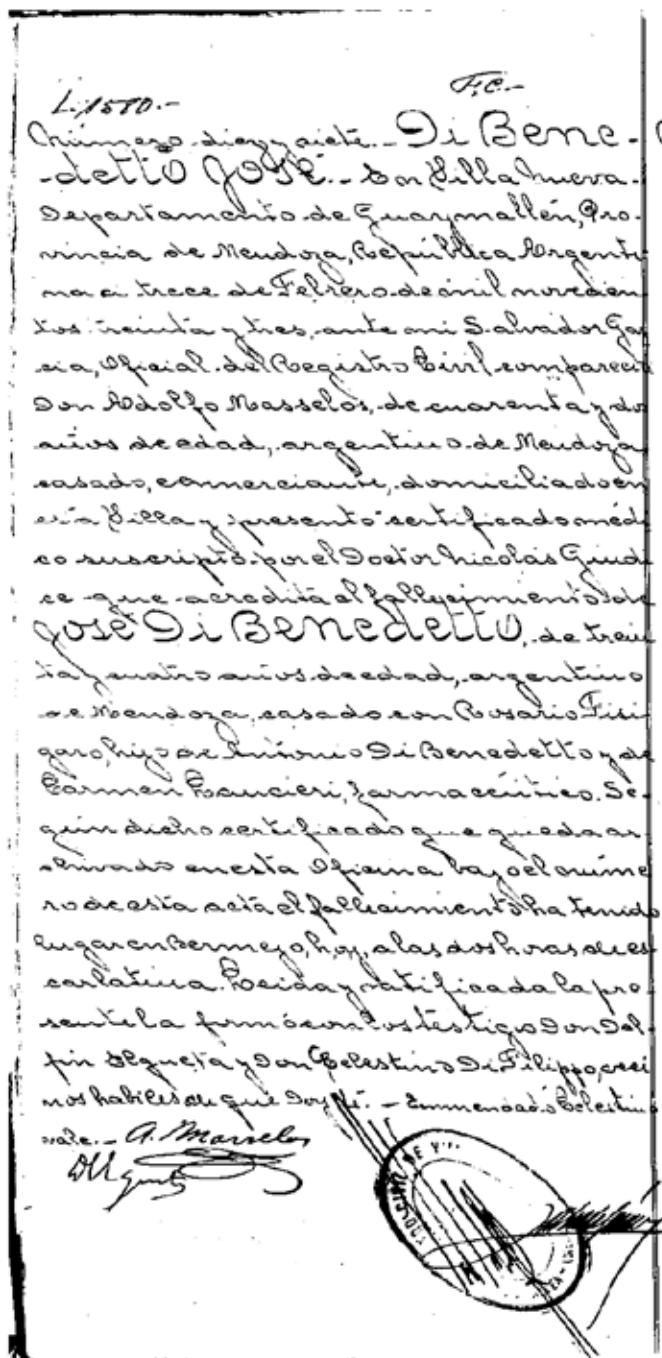 L. 1580.-
F.C.-
Número diez y siete.- Di Bene-
-detto José.- En Villa Nueva.
Departamento de Guaymallén, Pro-
vincia de Mendoza, República Argenti
na a trece de Febrero de mil novecien
tos treinta y tres, ante mi Salvador Gar
cia, Oficial del Registro Civil comparecio
Don Adolfo Masselos, de cuarenta y dos
años de edad, argentino de Mendoza,
casado, comerciante, domiciliado en
esta Villa y presentó sertificado médi
co suscripto por el Doctor Nicolás Giudi
ce que acredita el fallecimiento de
José Di Benedetto, de trein
ta y cuatro años de edad, argentino
de Mendoza, casado con Rosario Fisi
garo, hijo de Antonio Di Benedetto y de
Carmen, farmacéutico. Se
gún dicho certificado que queda ar
chivado en esta Oficina bajo el núme
ro de esta acta el fallecimiento ha tenido
lugar en Bermejo, hoy, a las dos horas de es
carlatina. Leida y ratificada la pre
sente la firmó con los testigos Don Del
fin Ulqueta y Don Celestino Di Filippo, veci
nos habiles de que doy fé.- Enmendado Celestino
vale.- A. Masselos